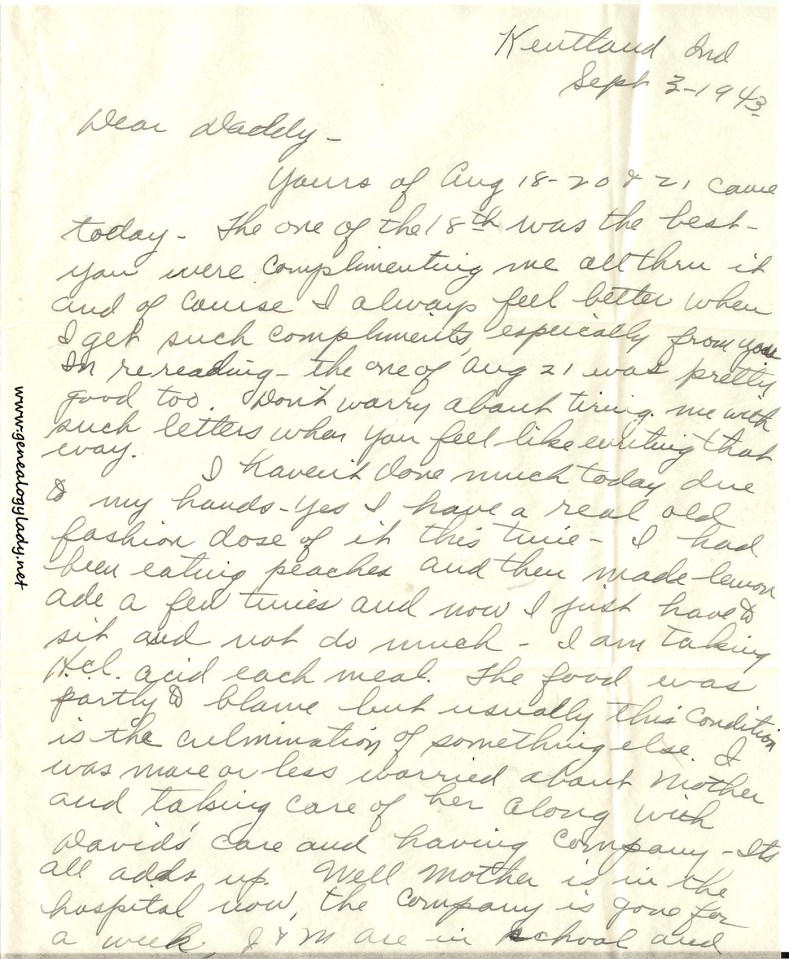 Kentland Ind
Sept 3-1943.
Dear Daddy-
Yours of Aug 18-20 & 21 came
today- The one of the 18th was the best-
you were complimenting me all thru it
and of course I always feel better when
I get such compliments, especially from you
In rereading- the one of Aug 21 was pretty
good too. Don't worry about tiring me with
such letters when you feel like writing that
way.
I haven't done much today due
to my hands-Yes I have a real old
fashion dose of it this time- I had
been eating peaches and then made lemon
ade a few times and now I just have to
sit and not do much- I am taking
H.cl. acid each meal. The food was
partly to blame but usually this condition
is the culmination of something else. I
was more or less worried about Mother
and taking care of her along with
David's care and having company-Its
all adds up. Well Mother is in the
hospital now, the company is gone for
a week, J & M are in school and
www.genealogylady.net